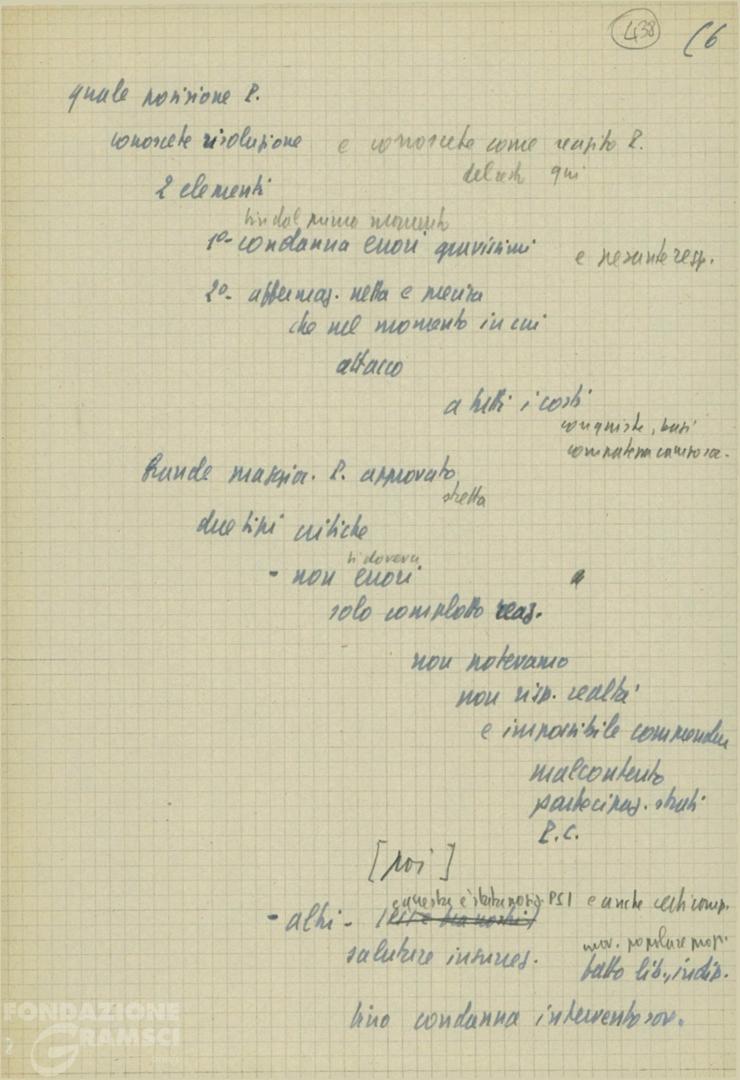 438 (6
quale posizione P.
conoscete risoluzione e conoscete come reagito P.
del resto qui
2 elementi
sin dal primo momento
1º- condanna errori gravissimi e pesante resp.
2º- affermaz. netta e precisa
che nel momento in cui
attacco
a tutti i costi
conquiste, basi
Grande maggior. P. approvato
stretta
due tipi critiche
si doveva
- non errori
solo complotto reaz.
non potevamo
non risp. realtà
e impossibile comprendere
malcontento
partecipaz. strati
P.C.
[poi]
questa è stata posiz. PSI e anche certi comp.
- altri -
mov. popolare prop.
salutare insurrez. lib., indip.
sino condanna intervento sov.
FONDAZIONE
GRAMSCI